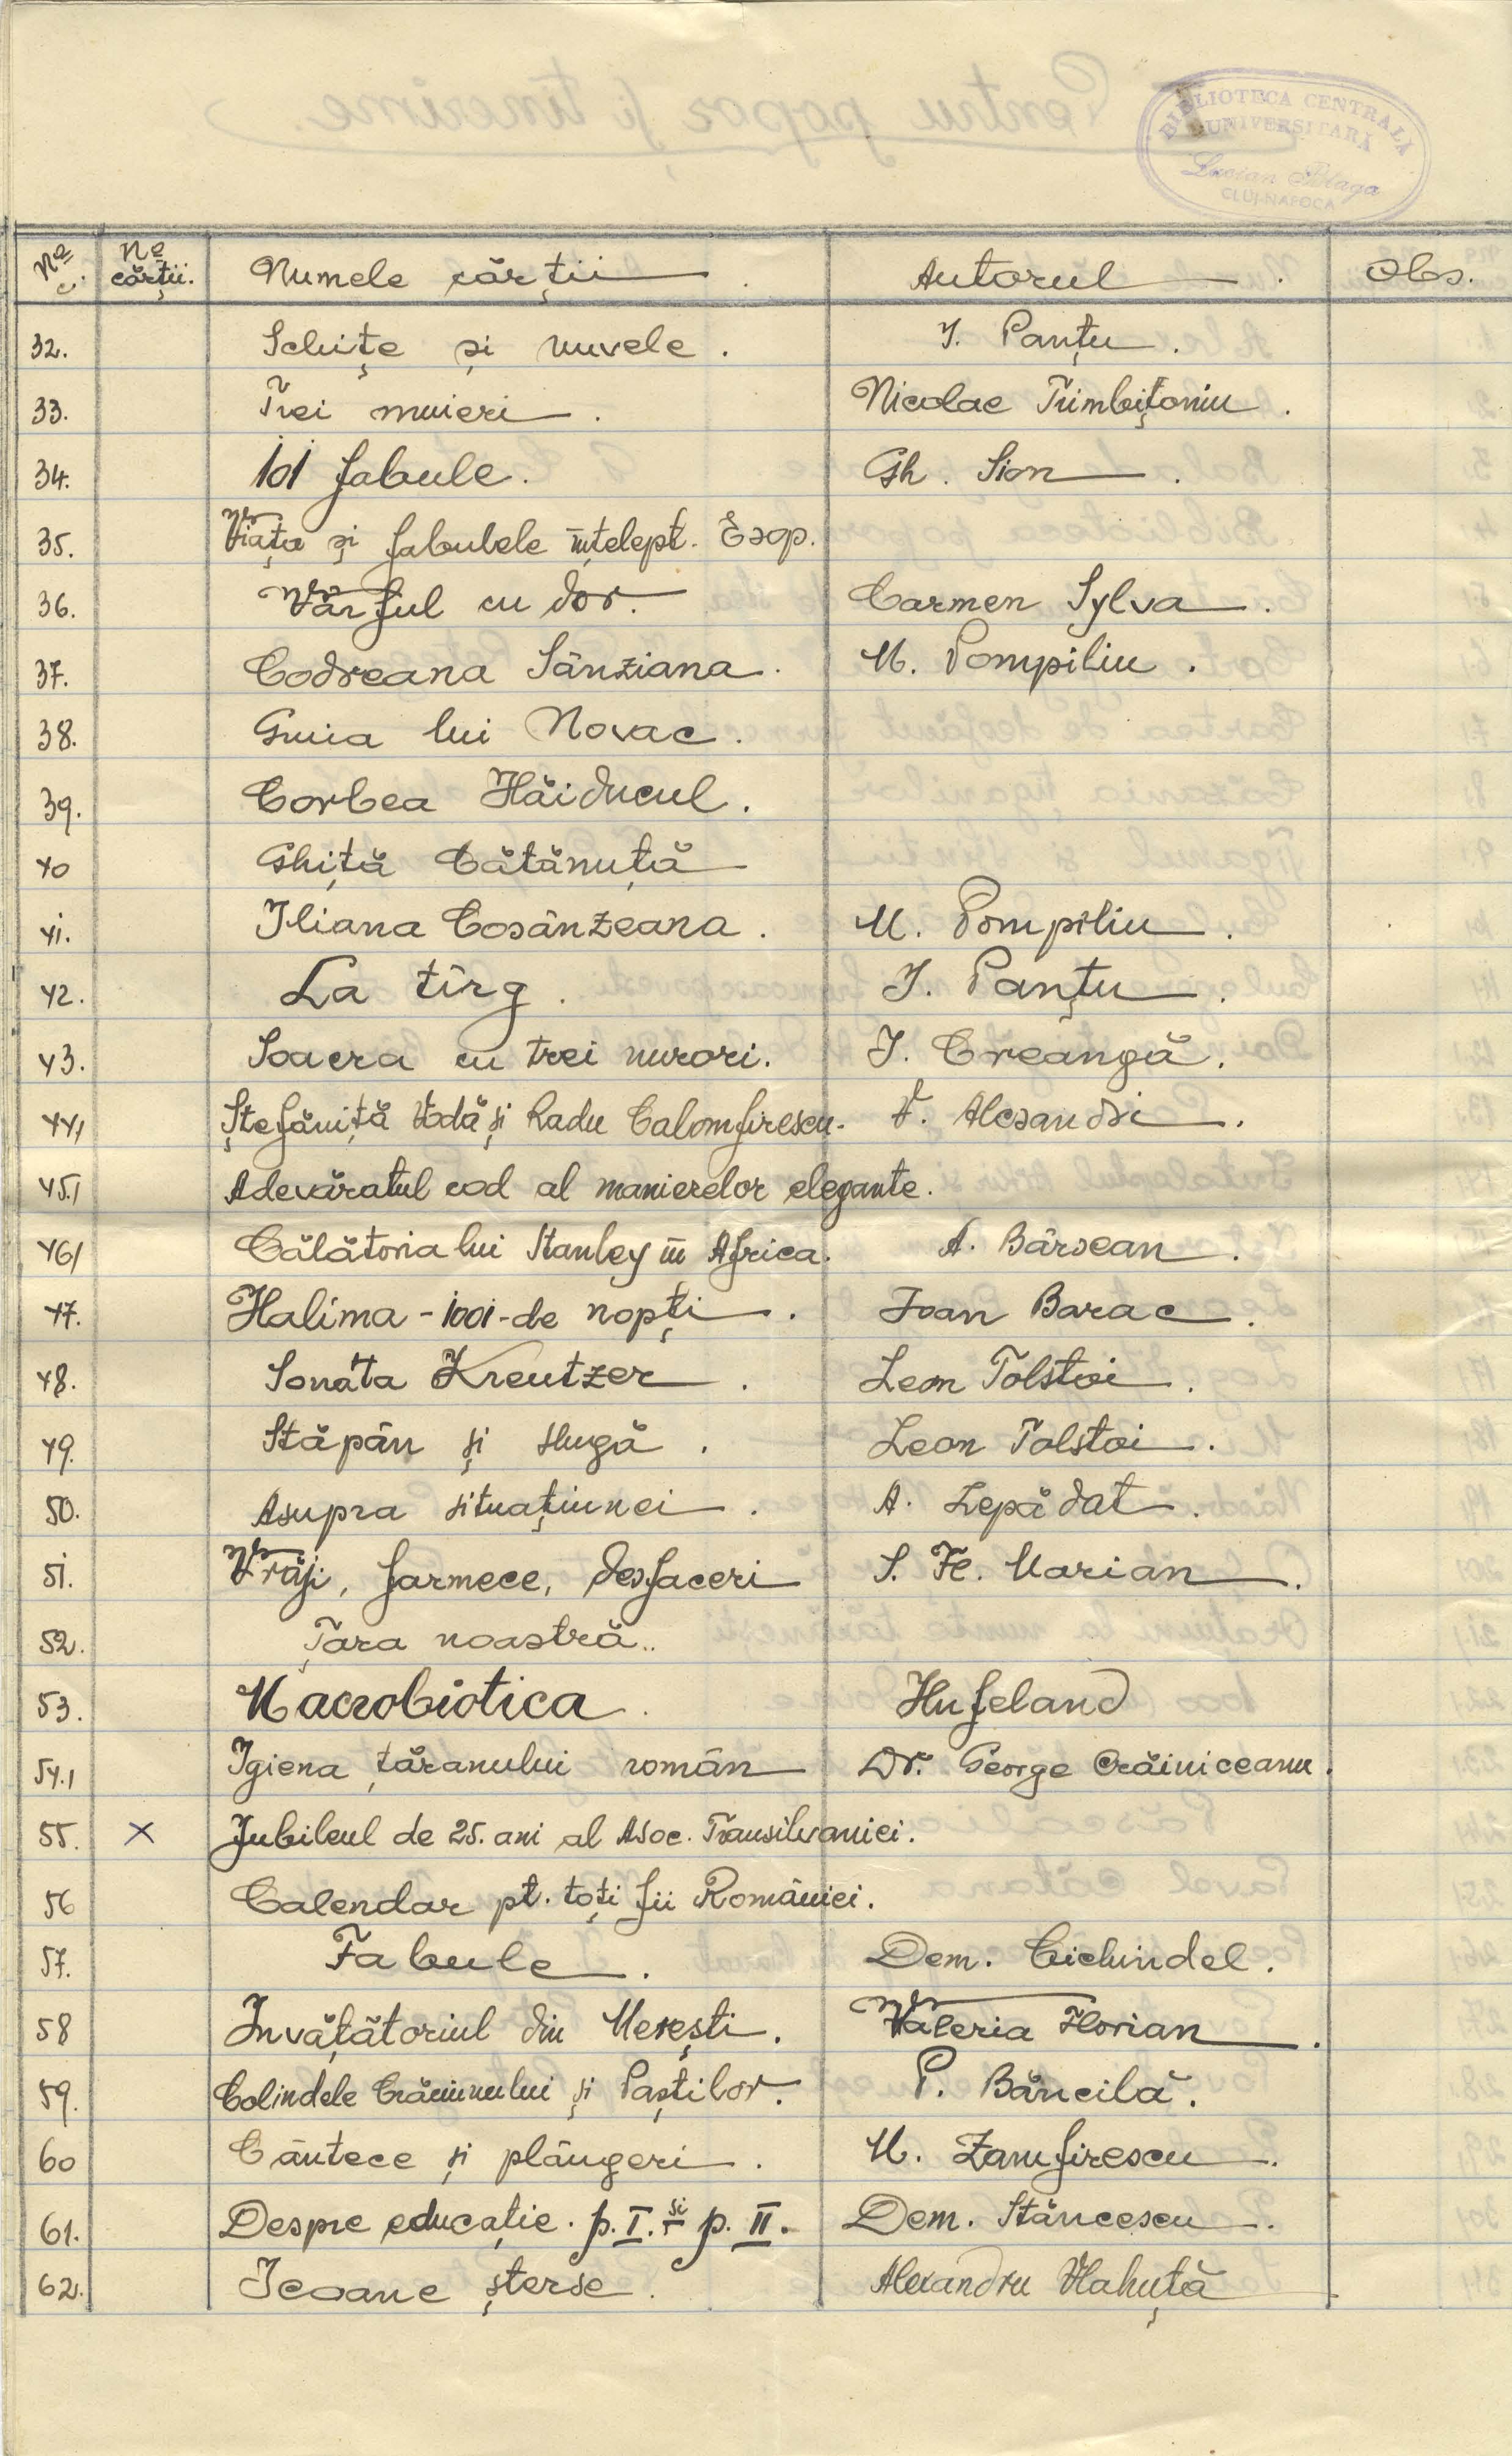 BIBLIOTECA CENTRALĂ
UNIVERSITARĂ
Lucian Blaga
CLUJ-NAPOCA
No c. No cărţii. Numele cărţii Autorul Obs.
32. Schiţe şi nuvele. I. Panţu.
33. Trei muieri. Nicolae Trimbiţoniu.
34. 101 fabule. Gh. Sion.
35. Viaţa şi fabulele înţelept. Esop.
36. Vârful cu dor. Carmen Sylva.
37. Codreana Sânziana. M. Pompiliu.
38. Gruia lui Novac.
39. Corbea Hăiducul.
40 Ghiţă Cătănuţă
41. Iliana Cosânzeana. M. Pompiliu.
42. La tîrg. I. Panţu.
43. Soacra cu trei nurori. I. Creangă.
44/ Ştefăniţă Vodă şi Radu Calomfirescu. V. Alesandri.
45./ Adevăratul cod al manierelor elegante.
46/ Călătoria lui Stanley în Africa. A. Bârsean.
47. Halima - 1001 - de nopţi. Ioan Barac.
48. Sonata Kreutzer. Leon Tolstoi.
49. Stăpân şi slugă. Leon Tolstoi.
50. Asupra situaţiunei. A. Lepădat.
51. Vrăji, farmece, desfaceri S. Fl. Marian.
52. Ţara noastră..
53. Macrobiotica. Hufeland
54./ Igiena ţăranului român Dr. George Crăiniceanu.
55. × Jubileul de 25. ani al Asoc. Transilvaniei.
56 Calendar pt. toţi fii României.
57. Fabule. Dem. Cichindel.
58 Invăţătoriul din Mereşti. Valeria Florian.
59. Colindele Crăciunului şi Paştilor. P. Băncilă.
60 Cântece şi plângeri. M. Zamfirescu.
61. Despre educaţie. p. I. şi p. II. Dem. Stăncescu.
62. Icoane şterse. Alexandru Vlahuţă